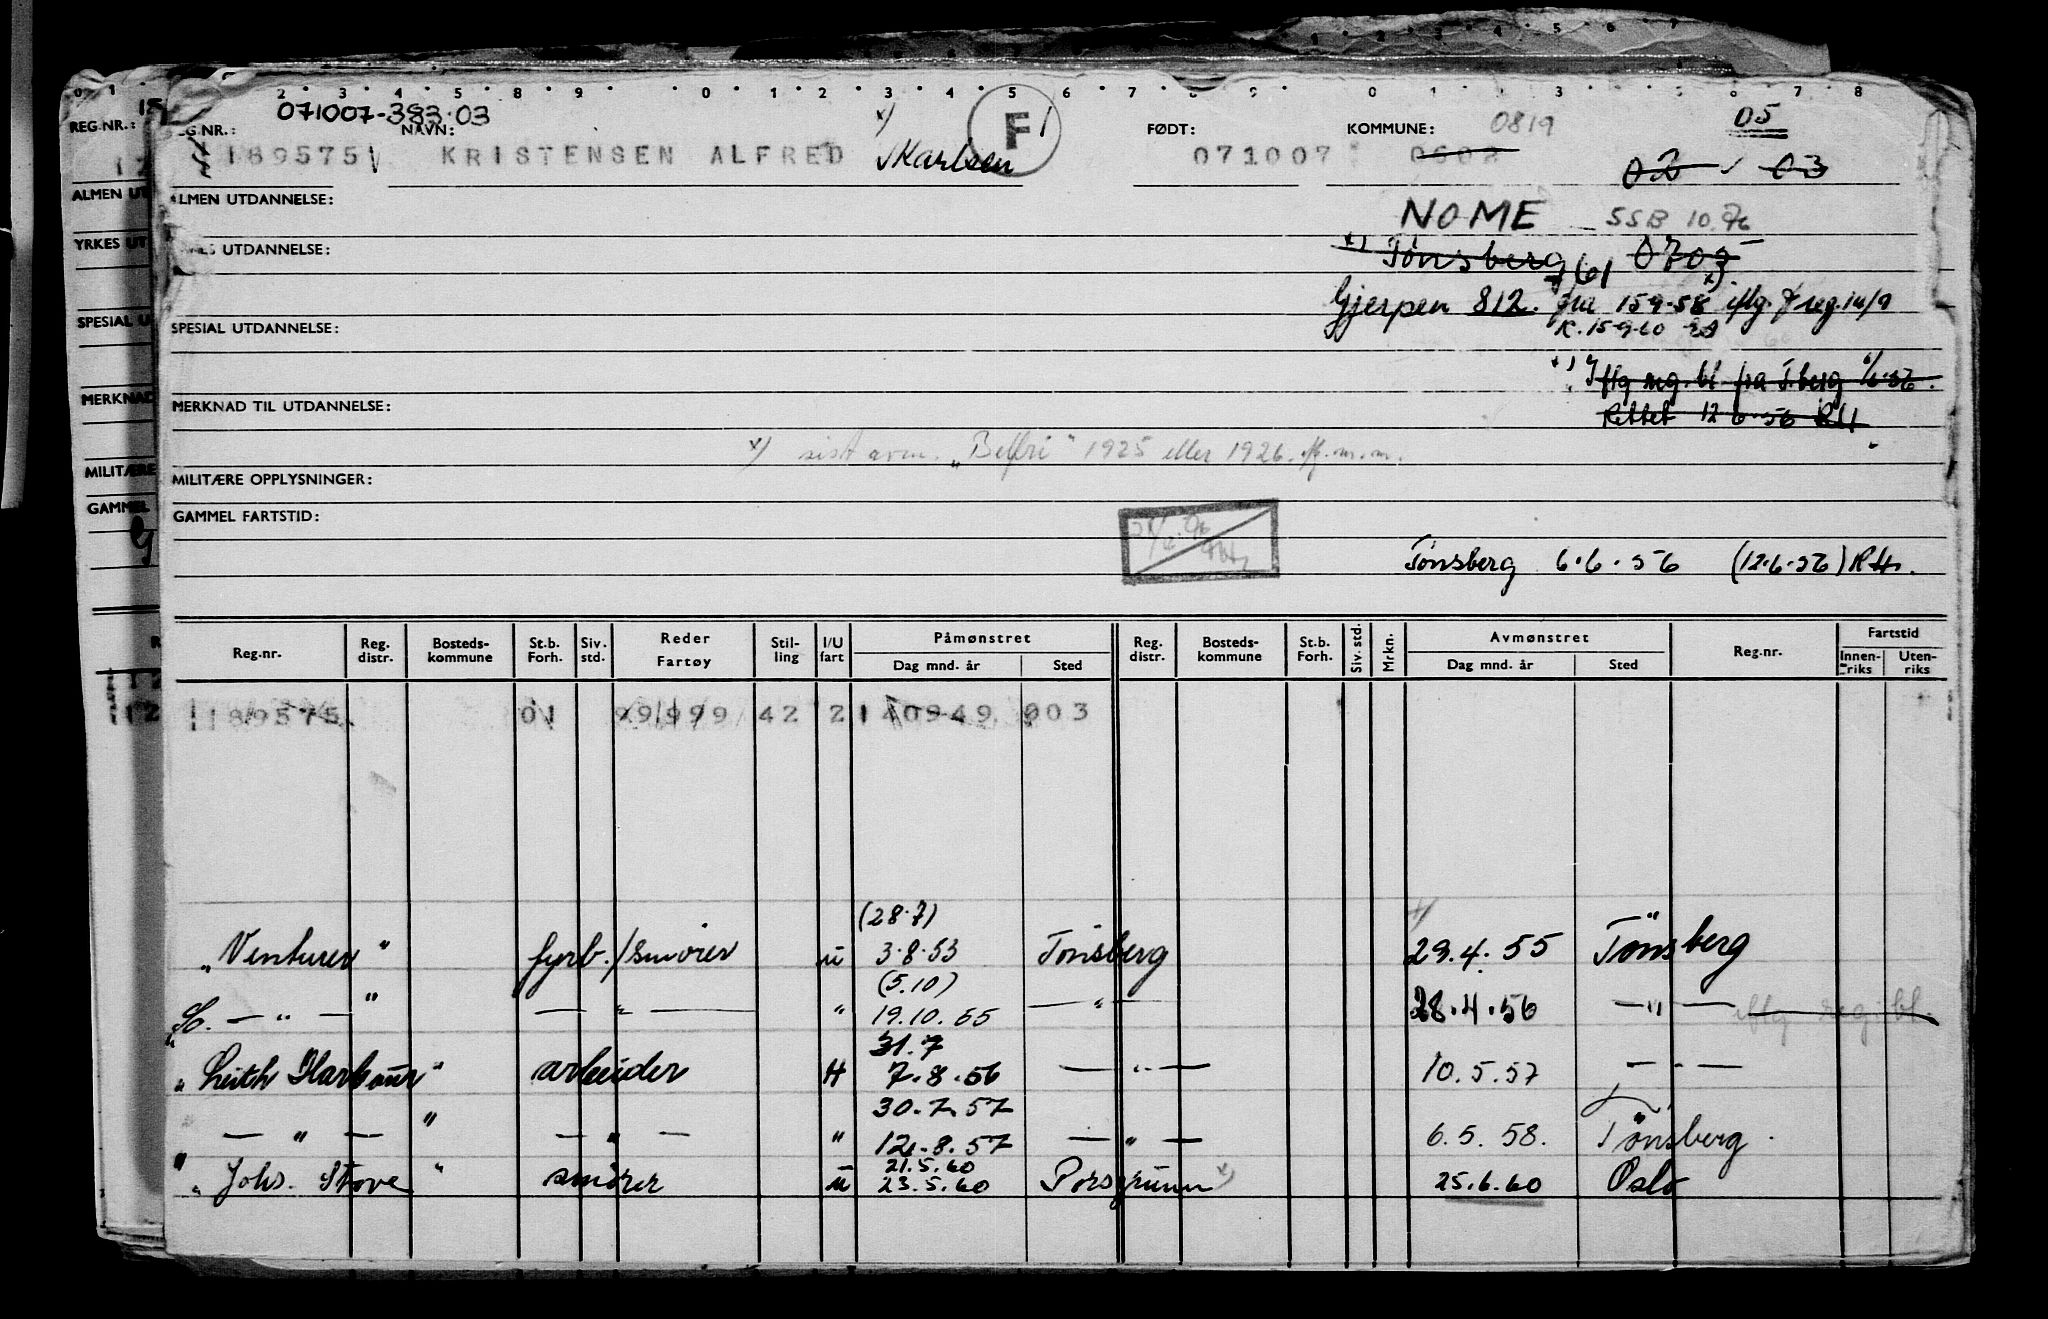 071007-383.03
REG.NR.: REG.NR.: NAVN: x) F 1 FØDT: KOMMUNE: 0819 05
189575 KRISTENSEN ALFRED Karlsen 071007 0602 02 03
ALMEN UTDANNELSE:
NOME SSB 10.76
YRKES UTDANNELSE:
x) Tønsberg 0703
761
Gjerpen 812. fra 15-9-58 iflg. reg.
K. 15-9-60
SPESIAL UTDANNELSE:
x) Iflg reg.bl fra T.berg 6/6-56.
MERKNAD TIL UTDANNELSE:
Rettet 12 6-56 RH
x) sist avm. "Belfri" 1925 eller 1926 iflg. m.m.
MILITÆRE OPPLYSNINGER:
GAMMEL FARTSTID:
Tønsberg 6.6.56 (12.6.56) RH.
Reg.nr. Reg. distr. Bosteds-kommune St.b. Forh. Siv. std. Reder Fartøy Stil-ling I/U fart Påmønstret Dag mnd. år Sted Reg. distr. Bosteds-kommune St.b. Forh. Siv. std. Mrkn. Avmønstret Dag mnd. år Sted Reg.nr. Fartstid Innen-riks Uten-riks
189575 01 99999 42 2 140949 003
(28.7)
"Venturer" fyrb./smører u 3.8.53 Tønsberg 29.4.55 Tønsberg
(5.10)
— " — " — " — " 19.10.55 — " — 28.4.56 — " — iflg reg.bl.
31.7
"Leith Harbour" arbeider H 7.8.56 — " — 10.5.57 — " —
30.7.57
— " — " — " — " 12.8.57 — " — 6.5.58. Tønsberg.
21.5.60
"Johs. Stove" smører u 23.5.60 Porsgrunn x) 25.6.60 Oslo